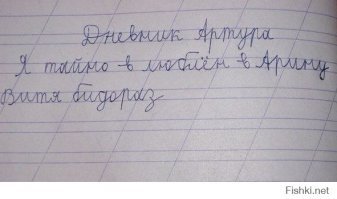 Дневник Артура
Я тайно в люблён в Арину
Витя бидораз
Fishki.net